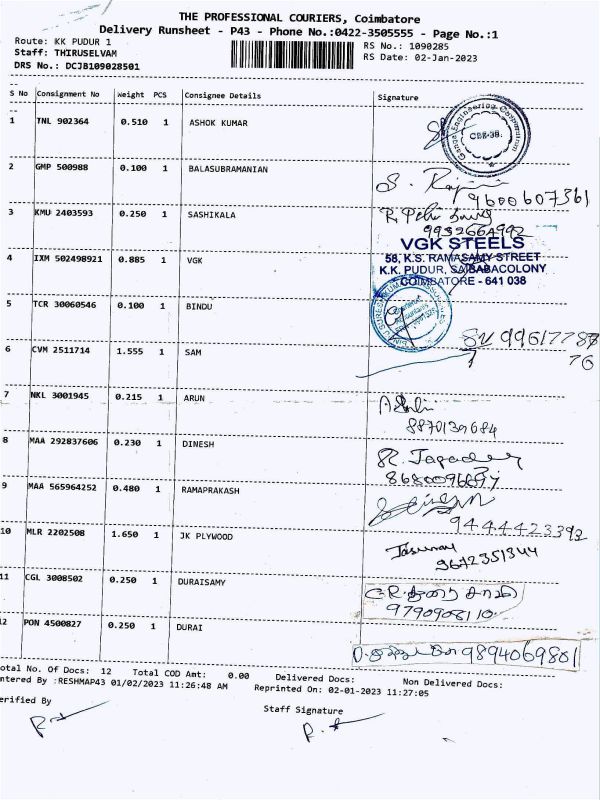 THE PROFESSIONAL COURIERS, Coimbatore
Delivery Runsheet - P43 - Phone No.:0422-3505555 - Page No.:1
Route: KK PUDUR 1
RS No.: 1090285
Staff: THIRUSELVAM
RS Date: 02-Jan-2023
DRS No.: DCJB109028501
S No Consignment No Weight PCS Consignee Details Signature
1 TNL 902364 0.510 1 ASHOK KUMAR
CBE-38.
2 GMP 500988 0.100 1 BALASUBRAMANIAN
9600607361
3 KMU 2403593 0.250 1 SASHIKALA
VGK STEELS
58, K.S. RAMASAMY STREET
K.K. PUDUR, SAIBABACOLONY
COIMBATORE - 641 038
4 IXM 502498921 0.885 1 VGK
5 TCR 30060546 0.100 1 BINDU
6 CVM 2511714 1.555 1 SAM
7 NKL 3001945 0.215 1 ARUN
8870139684
8 MAA 292837606 0.230 1 DINESH
9 MAA 565964252 0.480 1 RAMAPRAKASH
9444423392
10 MLR 2202508 1.650 1 JK PLYWOOD
9672351344
11 CGL 3008502 0.250 1 DURAISAMY
9790908110
12 PON 4500827 0.250 1 DURAI
9894069801
otal No. Of Docs: 12 Total COD Amt: 0.00 Delivered Docs: Non Delivered Docs:
ntered By :RESHMAP43 01/02/2023 11:26:48 AM Reprinted On: 02-01-2023 11:27:05
erified By
Staff Signature